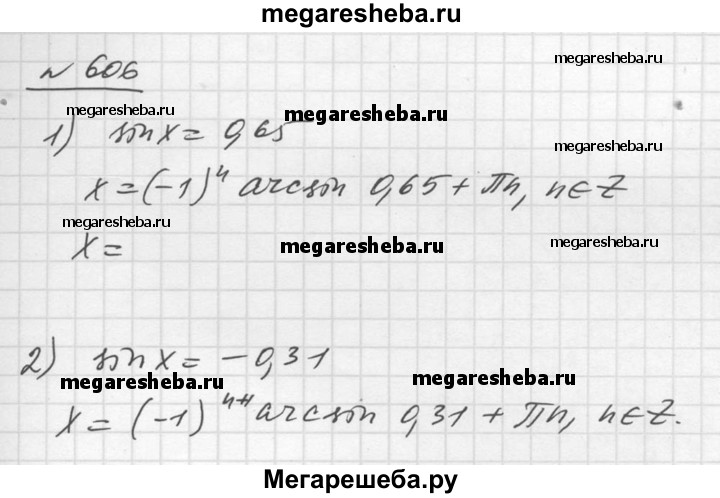 megaresheba.ru
№ 606
megaresheba.ru
megaresheba.ru
megaresheba.ru
1) sin x = 0,65
megaresheba.ru
x = (-1)^n arcsin 0,65 + Πn, n∈Z
megaresheba.ru
megaresheba.ru
megaresheba.ru
x =
2) sin x = -0,31
megaresheba.ru
megaresheba.ru
x = (-1)^n+1 arcsin 0,31 + Πn, n∈Z.
Мегарешеба.ру